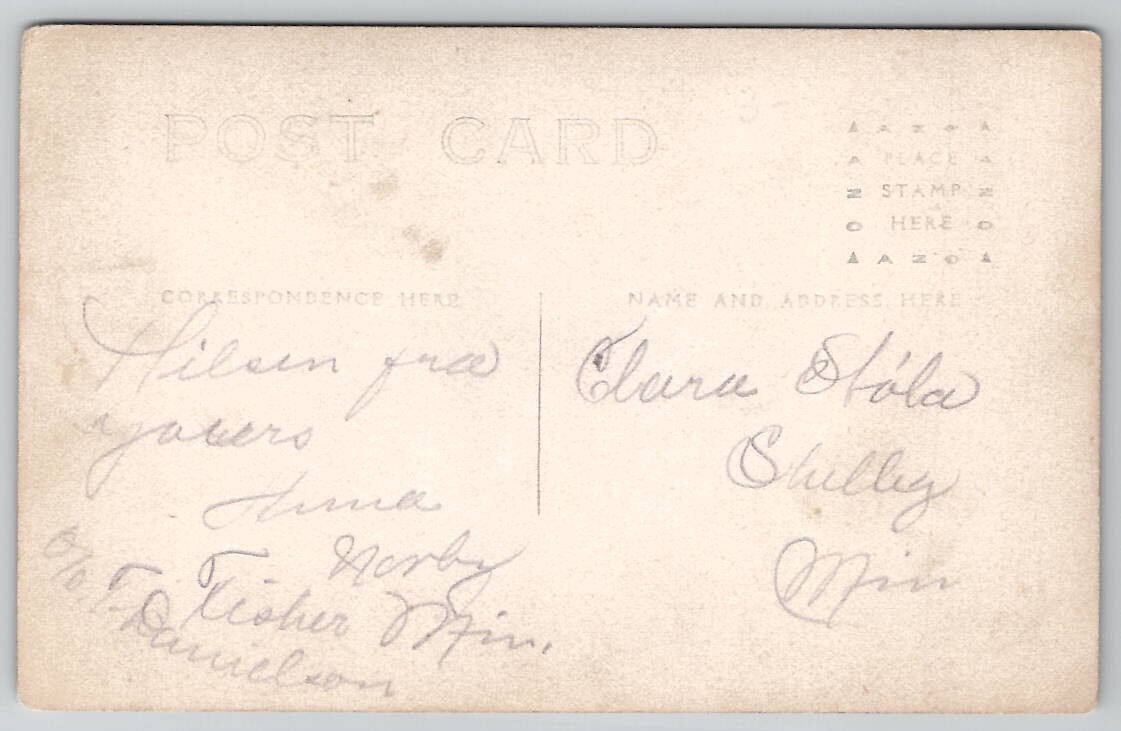 POST CARD
AZO
PLACE
STAMP
HERE
AZO
CORRESPONDENCE HERE
NAME AND ADDRESS HERE
Hilsen fra
yours
Anna
Norby
Fisher Min.
c/o T.
Danielson
Clara Stóla
Shelley
Min